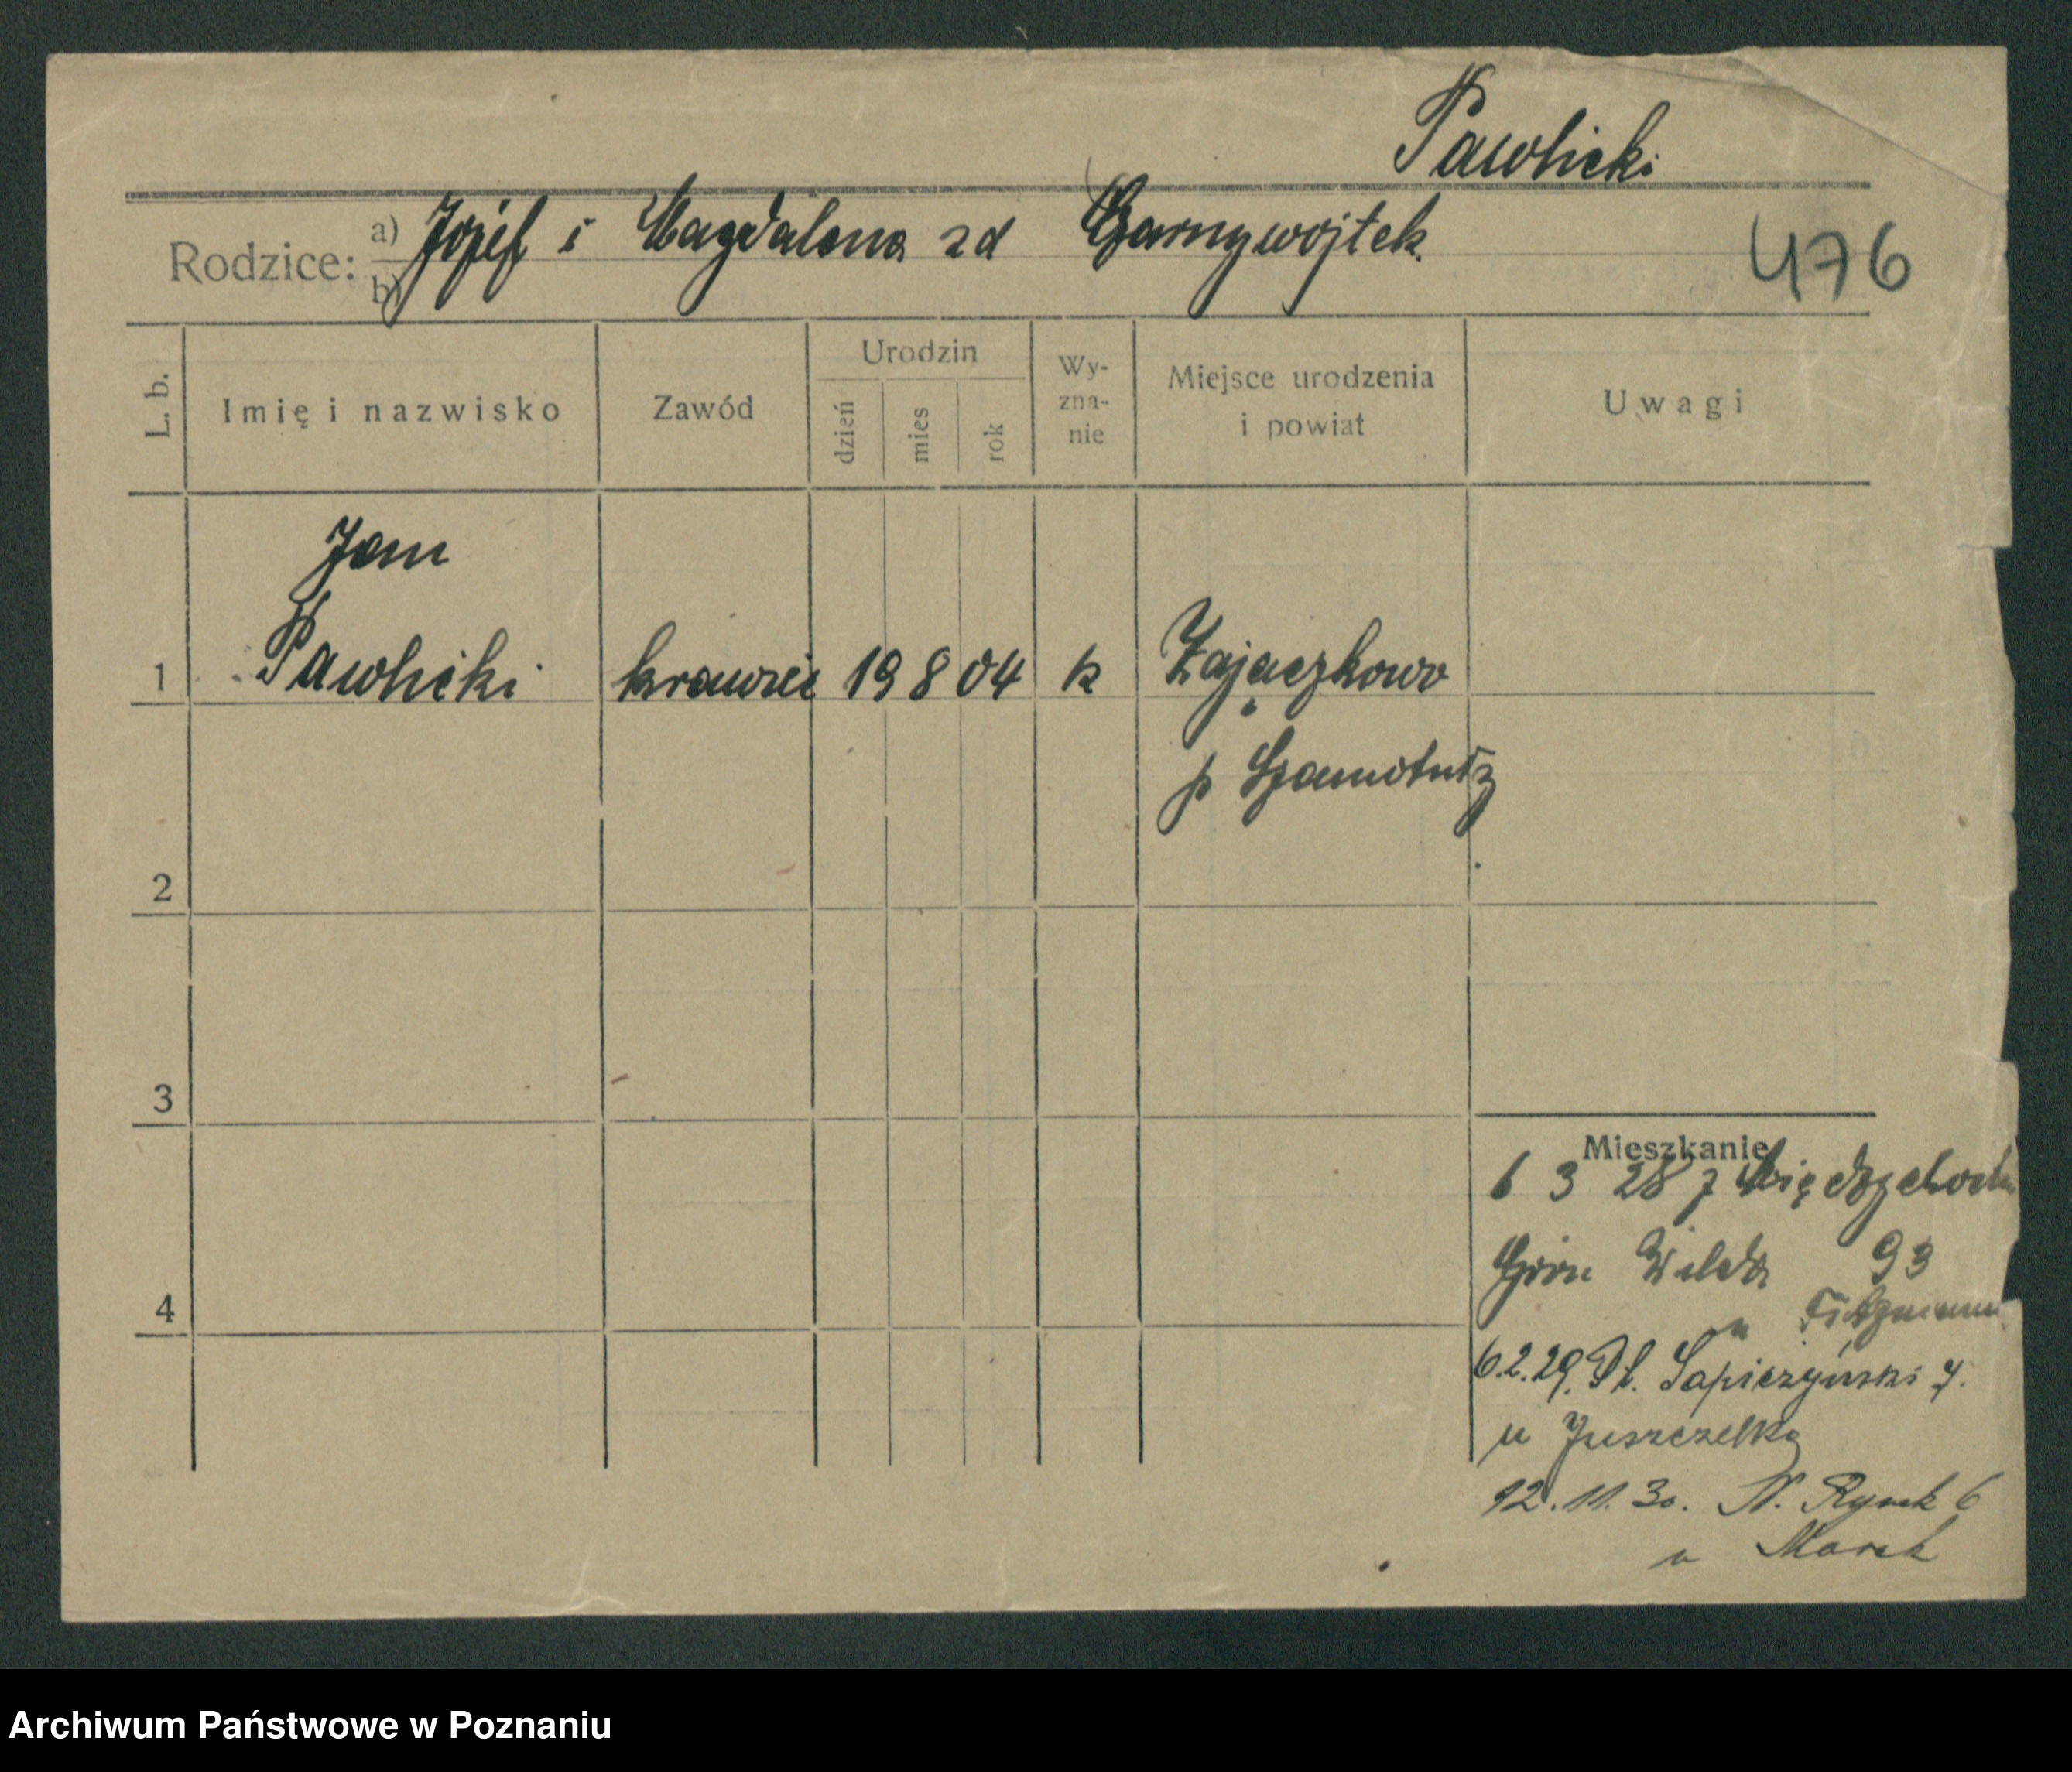 Pawlicki
Rodzice: a) Józef i Magdalena zd Czarnywojtek.
b)
476
L. b. Imię i nazwisko Zawód Urodzin dzień mies rok Wy-zna-nie Miejsce urodzenia i powiat Uwagi
Jan
1 Pawlicki krawiec 19 8 04 k Zajączkowo
p Szamotuły
2
3
4
Mieszkanie
6 3 28 z Międzychodu
Górn Wilda 93
u
6.2.29. Pl. Sapieżyński 7.
u Juszczelka
12.11.30. N. Rynek 6
u Marek
Archiwum Państwowe w Poznaniu